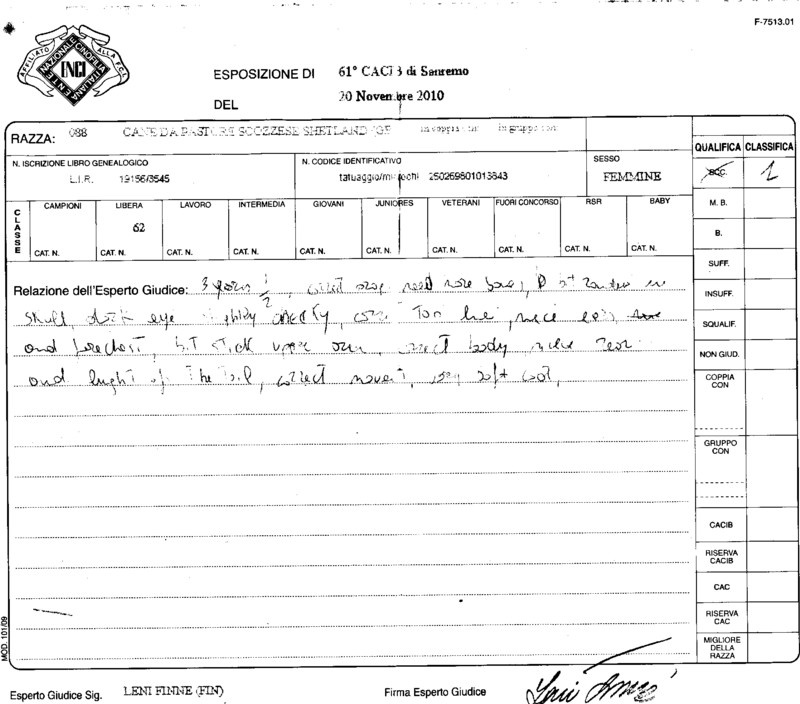 F-7513.01
AFFILIATO ALLA F.C.I.
ENTE NAZIONALE CINOFILIA ITALIANA
ENCI
ESPOSIZIONE DI 61° CACIB di Sanremo
DEL 20 Novembre 2010
RAZZA: 088 CANE DA PASTORE SCOZZESE SHETLAND in coppia con: in gruppo con:
QUALIFICA CLASSIFICA
N. ISCRIZIONE LIBRO GENEALOGICO
L.I.R. 19156/3545
N. CODICE IDENTIFICATIVO
tatuaggio/microchi 250269801013843
SESSO
FEMMINE
ECC. 1
CLASSE
CAMPIONI LIBERA LAVORO INTERMEDIA GIOVANI JUNIORES VETERANI FUORI CONCORSO RSR BABY
62
CAT. N. CAT. N. CAT. N. CAT. N. CAT. N. CAT. N. CAT. N. CAT. N. CAT. N. CAT. N.
M. B.
B.
SUFF.
INSUFF.
SQUALIF.
NON GIUD.
COPPIA CON
GRUPPO CON
CACIB
RISERVA CACIB
CAC
RISERVA CAC
MIGLIORE DELLA RAZZA
Relazione dell'Esperto Giudice: 3 years 1/2, need more in
skull, dark eye nice ears
and forechest, upper correct body
and of the correct very soft coat,
MOD. 101/09
Esperto Giudice Sig. LENI FINNE (FIN)
Firma Esperto Giudice